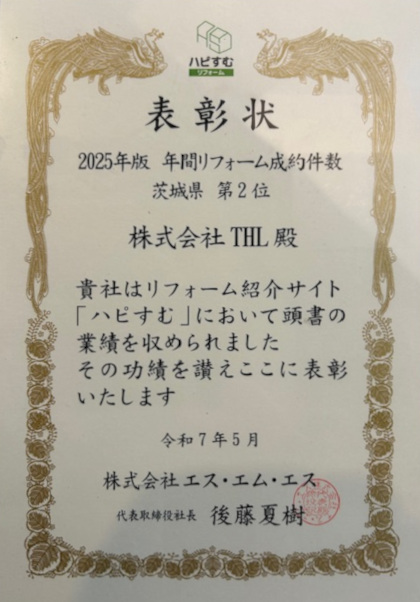 ハピすむ
リフォーム
表彰状
2025年版 年間リフォーム成約件数
茨城県 第2位
株式会社 THL 殿
貴社はリフォーム紹介サイト
「ハピすむ」において頭書の
業績を収められました
その功績を讃えここに表彰
いたします
令和7年5月
株式会社エス・エム・エス
代表取締役社長 後藤夏樹